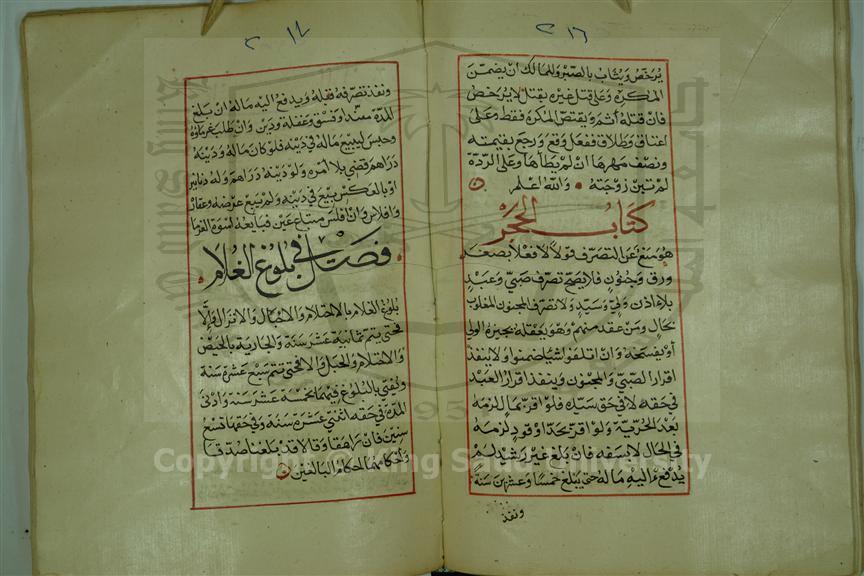 ٢١٦
يرخص ويثاب بالصبر وللمالك ان يضمن
المكره وعلى قتل غيره بقتل لا يرخص
فان قتله أثم ويقتص المكره فقط وعلى
اعتاق وطلاق ففعل وقع ورجع بقيمته
ونصف مهرها ان لم يطأها وعلى الردة
لم تبن زوجته والله اعلم
كتاب الحجر
هو منع عن التصرف قولا لا فعلا بصغر
ورق وجنون فلا يصح تصرف صبي وعبد
بلا اذن ولي وسيد ولا تصرف المجنون المغلوب
بحال ومن عقد منهم وهو يعقله يجيزه الولي
أو يفسخه وان اتلفوا شيا ضمنوا ولا ينفذ
اقرار الصبي والمجنون وينفذ اقرار العبد
في حقه لا في حق سيده فلو اقر بمال لزمه
بعد الحرية ولو اقر بحد او قود لزمه
في الحال لا بسفه فان بلغ غير رشيد لم
يدفع اليه ماله حتى يبلغ خمسا وعشرين سنة
ونفذ
٢١٧
ونفذ تصرفه قبله ويدفع اليه ماله ان بلغ
المدة مفسدا وفسق وغفلة ودين وان طلب غرماؤه
وحبس ليبيع ماله في دينه فلو كان ماله ودينه
دراهم قضي بلا امره ولو دينه دراهم وله دنانير
او بالعكس بيع في دينه ولم يبع عرضه وعقاره
وافلاس وان افلس مبتاع عين فبايعه اسوة الغرما
فصل في بلوغ الغلام
بلوغ الغلام بالاحتلام والاحبال والانزال والا
فحتى يتم ثمانية عشر سنة والجارية بالحيض
والاحتلام والحبل والا فحتى تتم سبع عشرة سنة
ويفتي بالبلوغ فيهما بخمسة عشر سنة وادنى
المدة في حقه اثنتي عشرة سنة وفي حقها تسع
سنين فان راهقا وقالا قد بلغنا صدقا
وأحكامهما احكام البالغين
Copyright © King Saud University